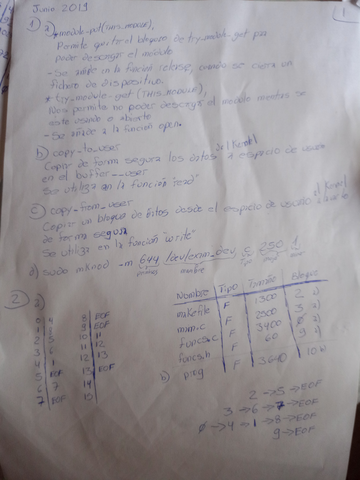 Junio 2019
1
1) a)
* module_put(THIS_MODULE),
Permite quitar el bloqueo de try_module_get para
poder descargar el módulo
- Se añade en la función release, cuando se cierra un
fichero de dispositivo.
* try_module_get (THIS_MODULE),
Nos permite no poder descargar el módulo mientras se
esté usando o abierto
- Se añade a la función open.
b) copy_to_user
del Kernel
Copiar de forma segura los datos al espacio de usuario
en el buffer __user
Se utiliza en la función "read"
c) copy_from_user
el Kernel
Copiar un bloque de bytes desde el espacio de usuario
de forma segura
Se utiliza en la función "write"
d) sudo mknod -m 644 /dev/exam_dev c 250 1
nombre
2
a)
0 4 8 EOF
1 8 9 EOF
2 5 10 11
3 6 11 12
4 1 12 13
5 EOF 13 EOF
6 7 14
7 EOF 15
Nombre Tipo Tamaño Bloque
makefile F 1300 2
mum.c F 2000 3
funcs.c F 3400 0
funcs.h F 60 9
ping F 3640 10
b)
2 → 5 → EOF
3 → 6 → 7 → EOF
0 → 4 → 1 → 8 → EOF
9 → EOF